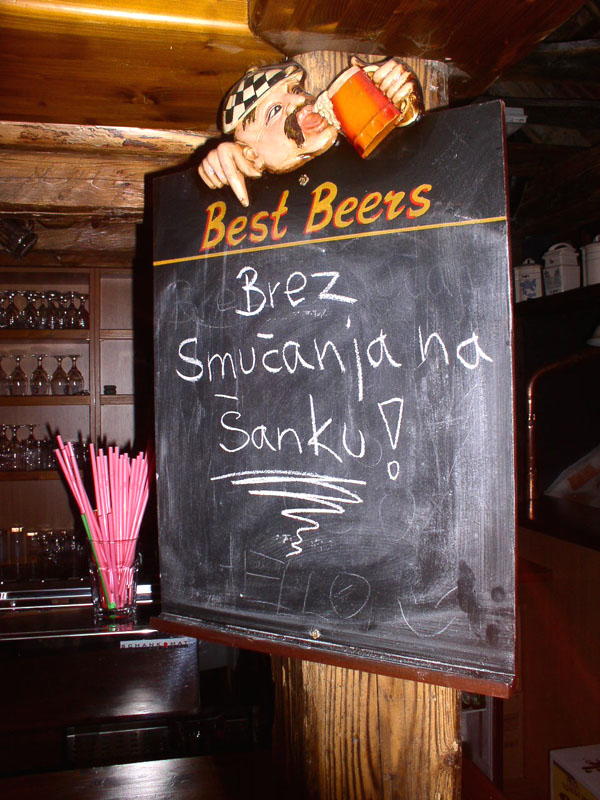 Best Beers
Brez
Smučanja na
Šanku!
SCHANKOMAT